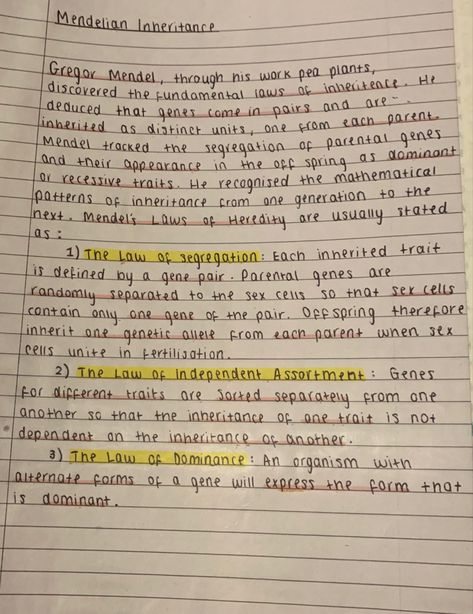 Mendelian Inheritance
Gregor Mendel, through his work pea plants,
discovered the fundamental laws of inheritence. He
deduced that genes come in pairs and are
inherited as distinct units, one from each parent
Mendel tracked the segregation of parental genes
and their appearance in the off spring as dominant
or recessive traits. He recognised the mathematical
patterns of inheritance from one generation to the
next. Mendel's Laws of Heredity are usually stated
as:
1) The Law of segregation: Each inherited trait
is defined by a gene pair. Parental genes are
randomly separated to the sex cells so that sex cells
contain only one gene of the pair. Offspring therefore
inherit one genetic allele from each parent when sex
cells unite in fertilisation.
2) The Law of Independent Assortment: Genes
for different traits are sorted separately from one
another so that the inheritance of one trait is not
dependent on the inheritance of another.
3) The Law of Dominance: An organism with
alternate forms of a gene will express the form that
is dominant.